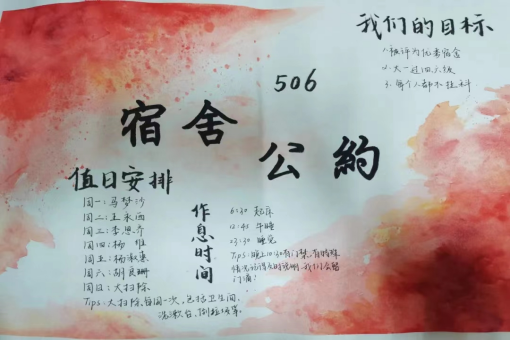 我们的目标
1.被评为优秀宿舍
2.大一过四六级
3.每个人都不挂科
506
宿舍
公約
值日安排
周一:马梦沙
周二:王来雨
周三:李思齐
周四:杨维
周五:杨淑惠
周六:胡良珊
周日:大扫除
Tips:大扫除每周一次,包括卫生间、
洗漱台、倒垃圾等。
作息时间
6:30 起床
12:45 午睡
23:30 睡觉
Tips:晚上10:30有门禁,有特殊
情况记得及时说明,我们会留
门滴!